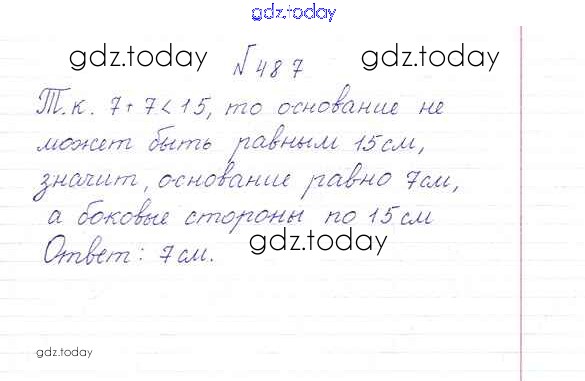 gdz.today
gdz.today №487 gdz.today
Т.к. 7+7<15, то основание не
может быть равным 15см,
значит, основание равно 7см,
а боковые стороны по 15см
Ответ: 7см. gdz.today
gdz.today